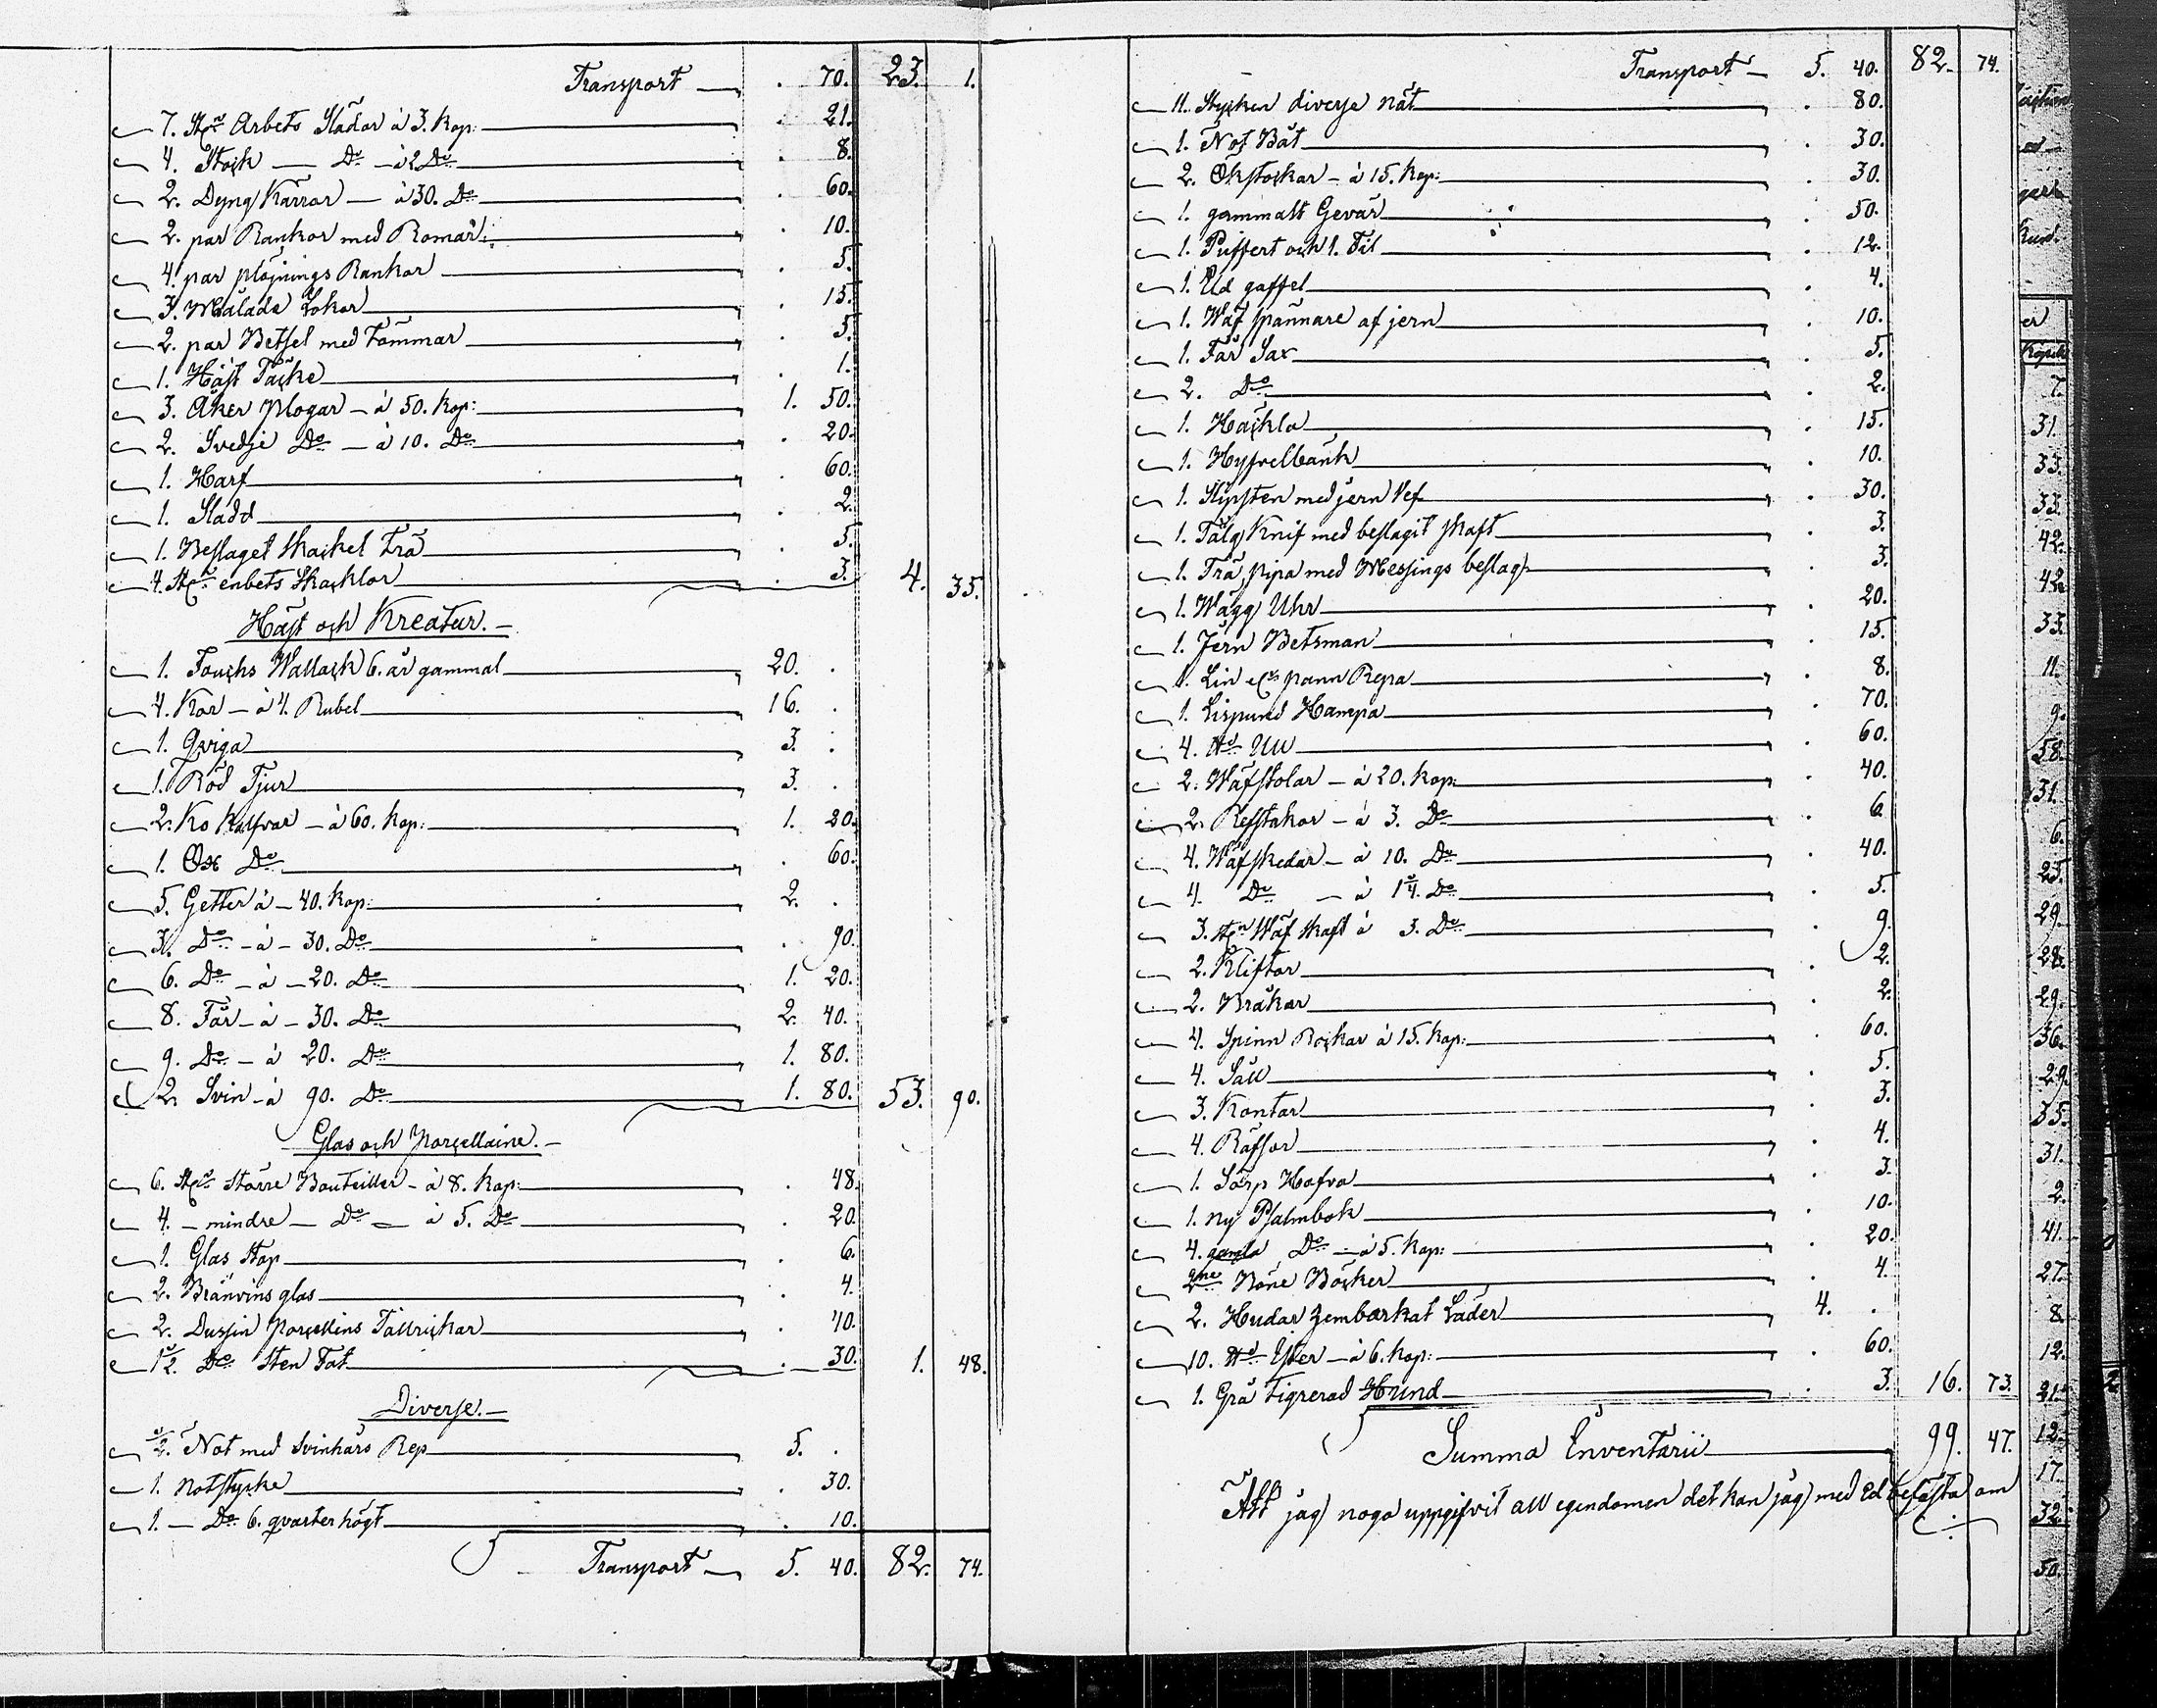 Transport — . 70. 23. 1.
7. St:n Arbets Slädar à 3. Kop: . 21.
4. Stock — Do — à 2 Do . 8.
2. Dyng Kärror — à 30. Do . 60.
2. par Rankor med Romar: . 10.
4. par plöjnings Rankor . 5.
3. Målade Lokar . 15.
2. par Betsel med tömmar . 5.
1. Häst Täcke . 1.
3. Åker plogar — à 50. Kop: 1. 50.
2. Svedje Do — à 10. Do . 20.
1. Harf . 60.
1. Sladd . 2.
1. Beslaget Skackel Trä . 5.
4. St:n enbets Skacklor . 3. 4. 35.
Häst och Kreatur. —
1. Fouchs Wallack 6. år gammal 20. .
4. Kor — à 4. Rubel 16. .
1. Qviga 3. .
1. Röd Tjur 3. .
2. Ko Kalfvar — à 60. Kop: 1. 20.
1. Ox Do . 60.
5. Getter à — 40. Kop: 2. .
3. Do — à — 30. Do . 90.
6. Do — à — 20. Do 1. 20.
8. Får — à — 30. Do 2. 40.
9. Do — à 20. Do 1. 80.
2. Svin — à 90. Do 1. 80. 53. 90.
Glas och Porcellaine. —
6. St:n större Bouteiller — à 8. Kop: . 48.
4. — mindre — Do — à 5. Do . 20.
1. Glas Stop . 6.
2. Bränvins glas . 4.
2. Dussin Porcellins Tallrickar . 40.
1/2. Do Sten Fat . 30. 1. 48.
Diverse. —
1/2. Not med Svinhårs Rep 5. .
1. Notstycke . 30.
1. — Do 6. qvarter högt . 10.
Transport — 5. 40. 82. 74.
Transport — 5. 40. 82. 74.
11. Stycken diverse nät . 80.
1. Not Båt . 30.
2. Ökstockar — à 15. Kop: . 30.
1. gammalt Gevär . 50.
1. Puffert och 1. Fil . 12.
1. Eld gaffel . 4.
1. Wäf spännare af jern . 10.
1. Får Sax . 5.
2. Do . 2.
1. Häckla . 15.
1. Hyfvelbänk . 10.
1. Slipsten med jern Vef . 30.
1. Tälg Knif med beslagit skaft . 3.
1. Trä pipa med Messings beslag . 3.
1. Wägg Uhr . 20.
1. Jern Betsman . 15.
1. Lin pann Repa . 8.
1. Lispund Hampa . 70.
4. Ull . 60.
2. Wäfstolar — à 20. Kop: . 40.
2. Refstakar — à 3. Do . 6.
4. Wäfskedar — à 10. Do . 40.
4. Do — à 1 1/4. Do . 5.
3. St:n Wäf skaft à 3. Do . 9.
2. Kliftor . 2.
2. Bråkar . 2.
4. Spinn Rockar à 15. Kop: . 60.
4. Såll . 5.
3. Kontar . 3.
4. Räfsor . 4.
1. Sörp Hafva . 3.
1. ny Psalmbok . 10.
4. gamla Do — à 5. Kop: . 20.
2ne Böne Böcker . 4.
2. Hudar Läder 4. .
10. — à 6. Kop: . 60.
1. Grå Tigrerad Hund . 3. 16. 73.
Summa Inventarii 99. 47.
Att jag noga uppgifvit all egendomen det kan jag med Ed befästa om
er
Kopek
7.
31.
33.
33.
42.
42.
33.
11.
9.
58.
31.
6.
25.
29.
28.
29.
36.
29.
35.
31.
2.
41.
27.
8.
12.
21.
12.
17.
32.
50.